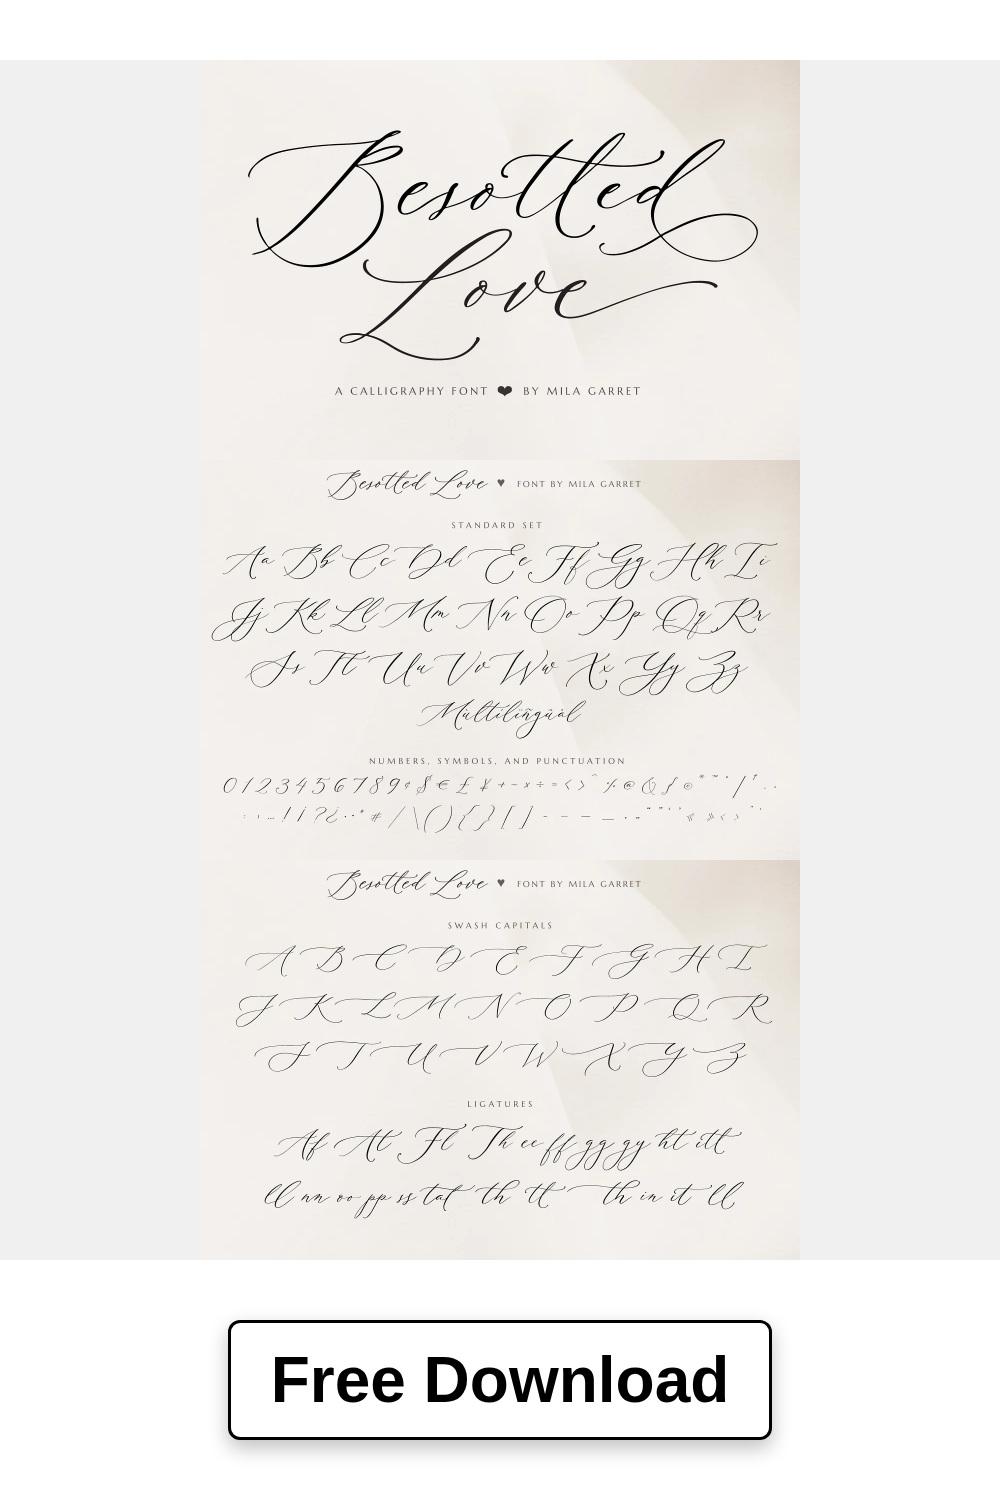 Besotted
Love
A CALLIGRAPHY FONT ❤ BY MILA GARRET
Besotted Love ♥ FONT BY MILA GARRET
STANDARD SET
Aa Bb Cc Dd Ee Ff Gg Hh Ii
Jj Kk Ll Mm Nn Oo Pp Qq Rr
Ss Tt Uu Vv Ww Xx Yy Zz
Multilingual
NUMBERS, SYMBOLS, AND PUNCTUATION
0 1 2 3 4 5 6 7 8 9 ¢ $ € £ ¥ + - × ÷ = < > ^ % @ &
! ¡ ? ¿ # / \ ( ) { } [ ]
Besotted Love ♥ FONT BY MILA GARRET
SWASH CAPITALS
A B C D E F G H I
J K L M N O P Q R
S T U V W X Y Z
LIGATURES
Af At Fl Th ee ff gg gy ht itt
ll nn oo pp ss tat th tt th in it ll
Free Download